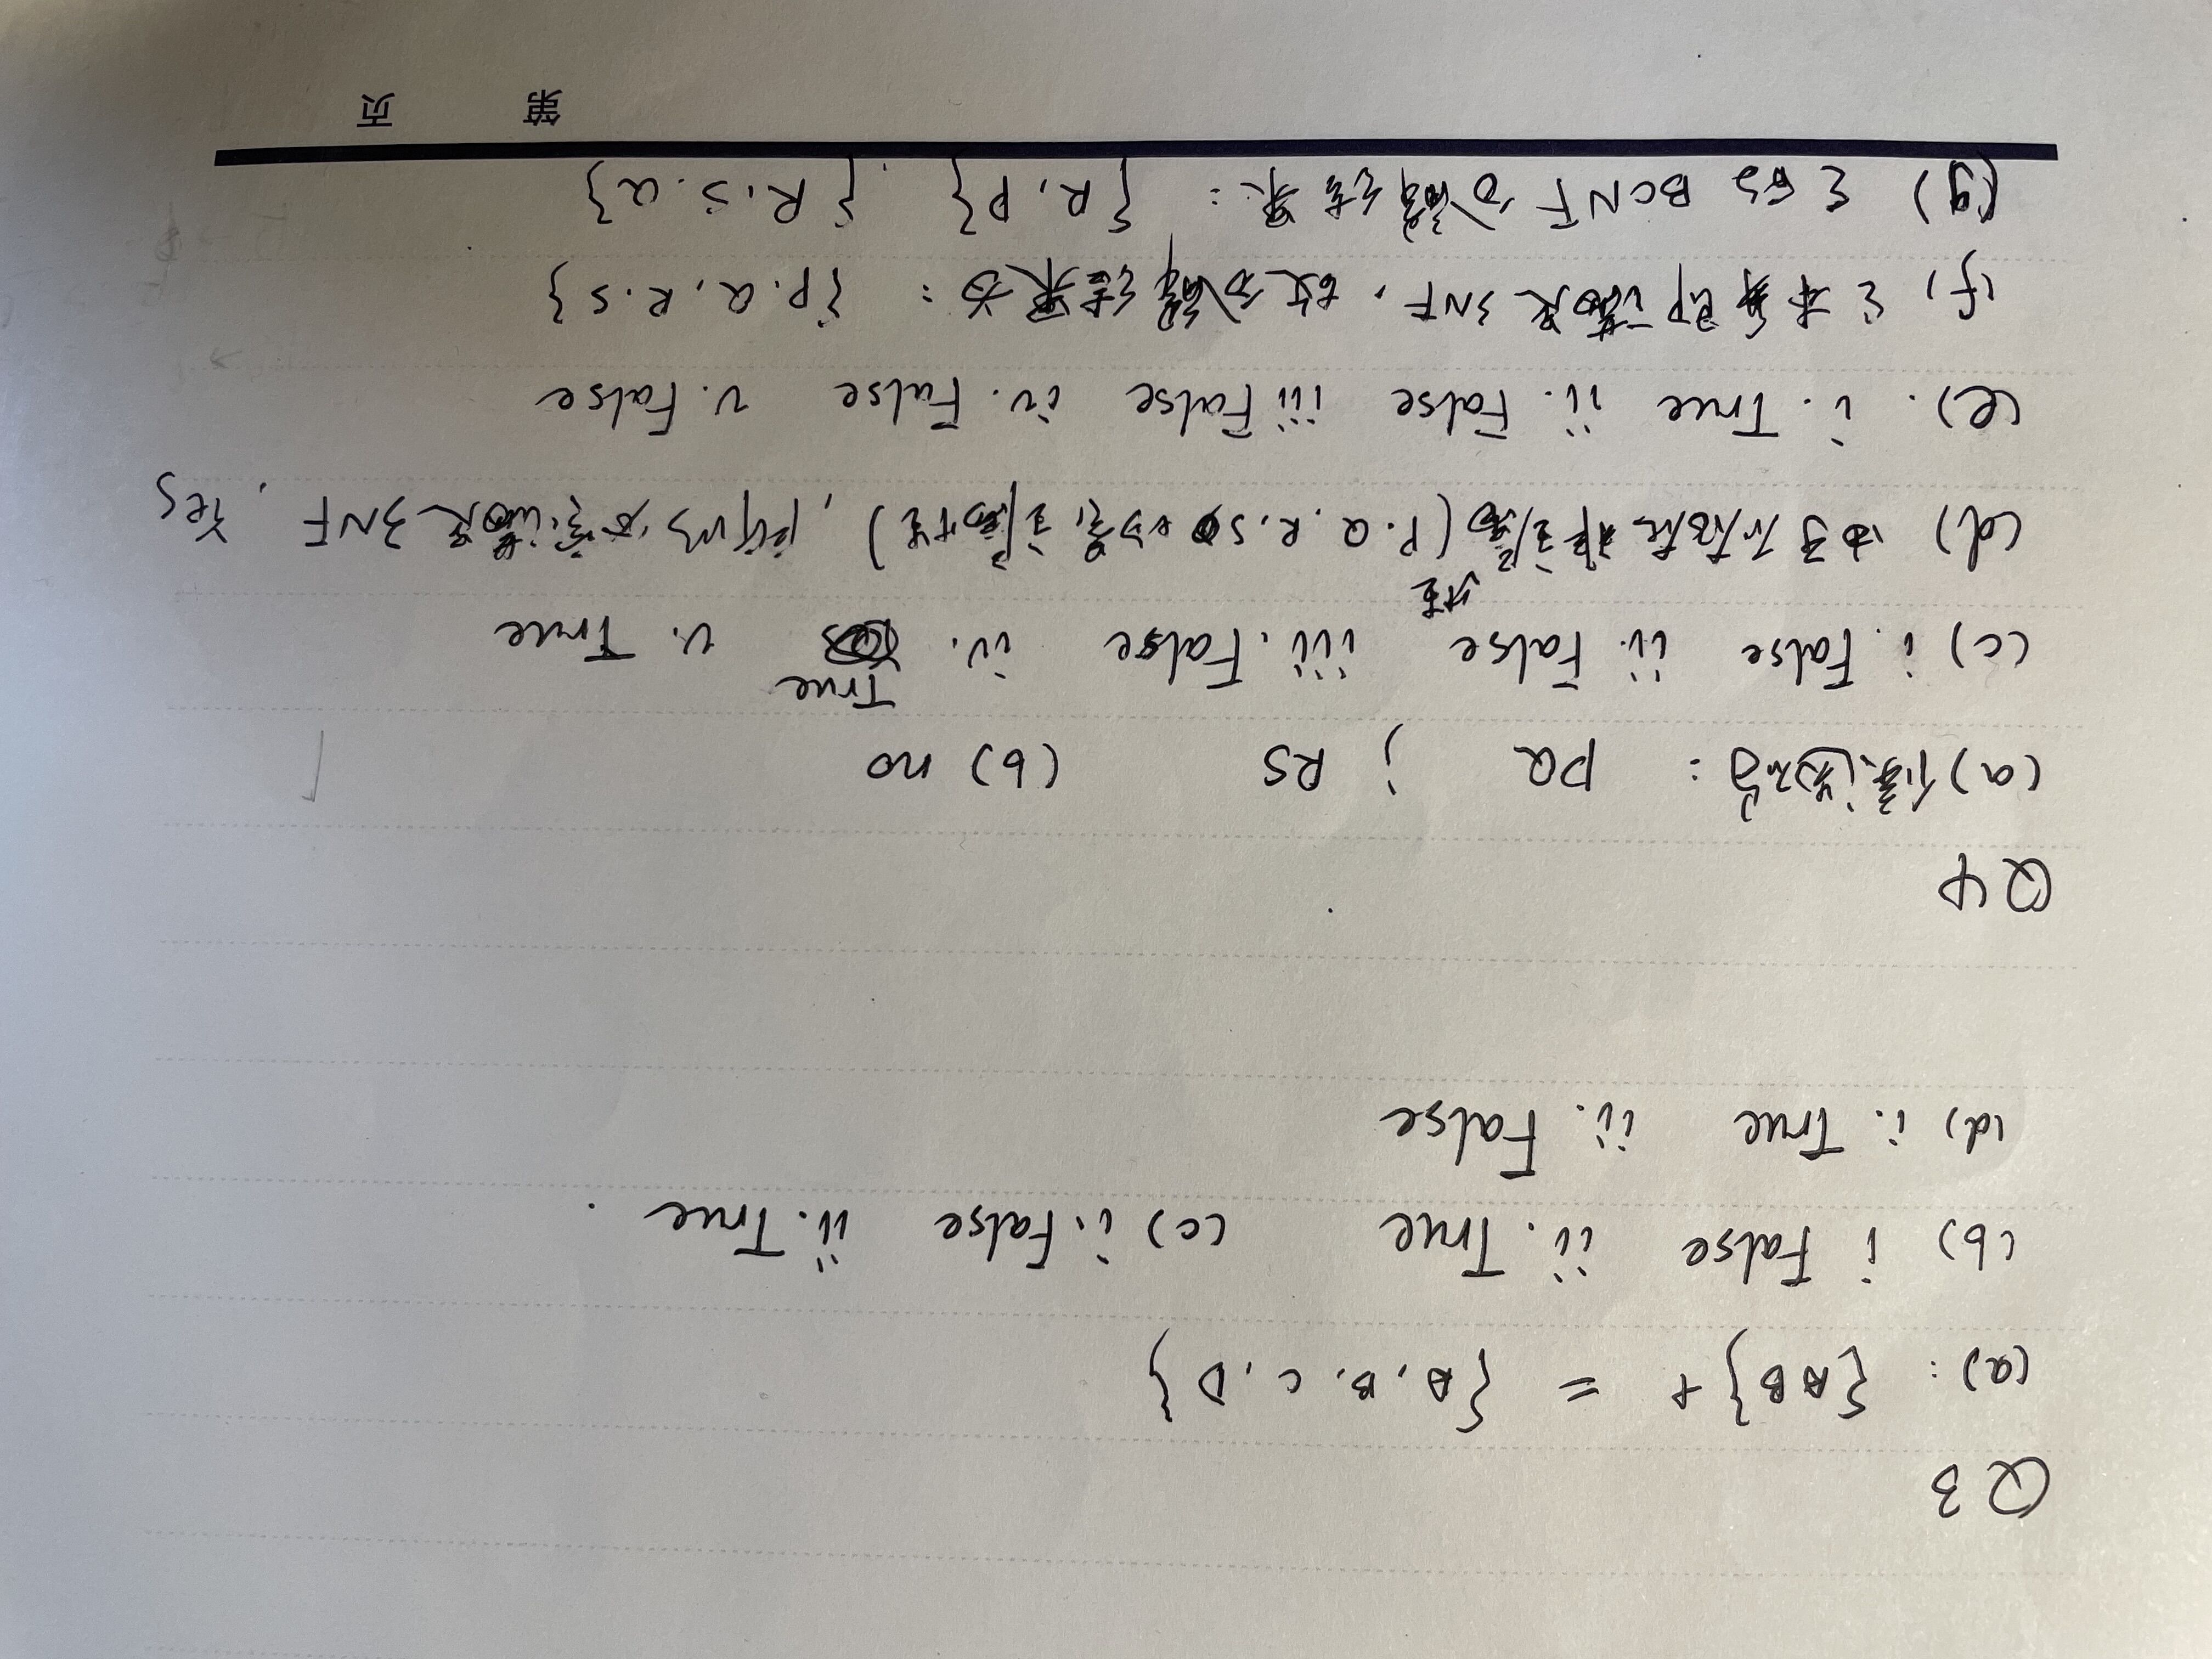 Q3
(a): {AB}+ = {A, B, C, D}
(b) i False ii. True (c) i. False ii. True .
(d) i. True ii. False
Q4
(a) 候选码: PQ ; RS (b) no
(c) i. False ii. False iii. False iv. True v. True
(d) 由于不存在非主属性(P.Q.R.S 均是主属性), 所以必定满足3NF, Yes
(e). i. True ii. False iii False iv. False v. False
(f) Σ本身即满足3NF, 故分解结果为: {P.Q,R.S}
(g) Σ的 BCNF 分解结果: {R, P} , {R.S.Q}
第 页